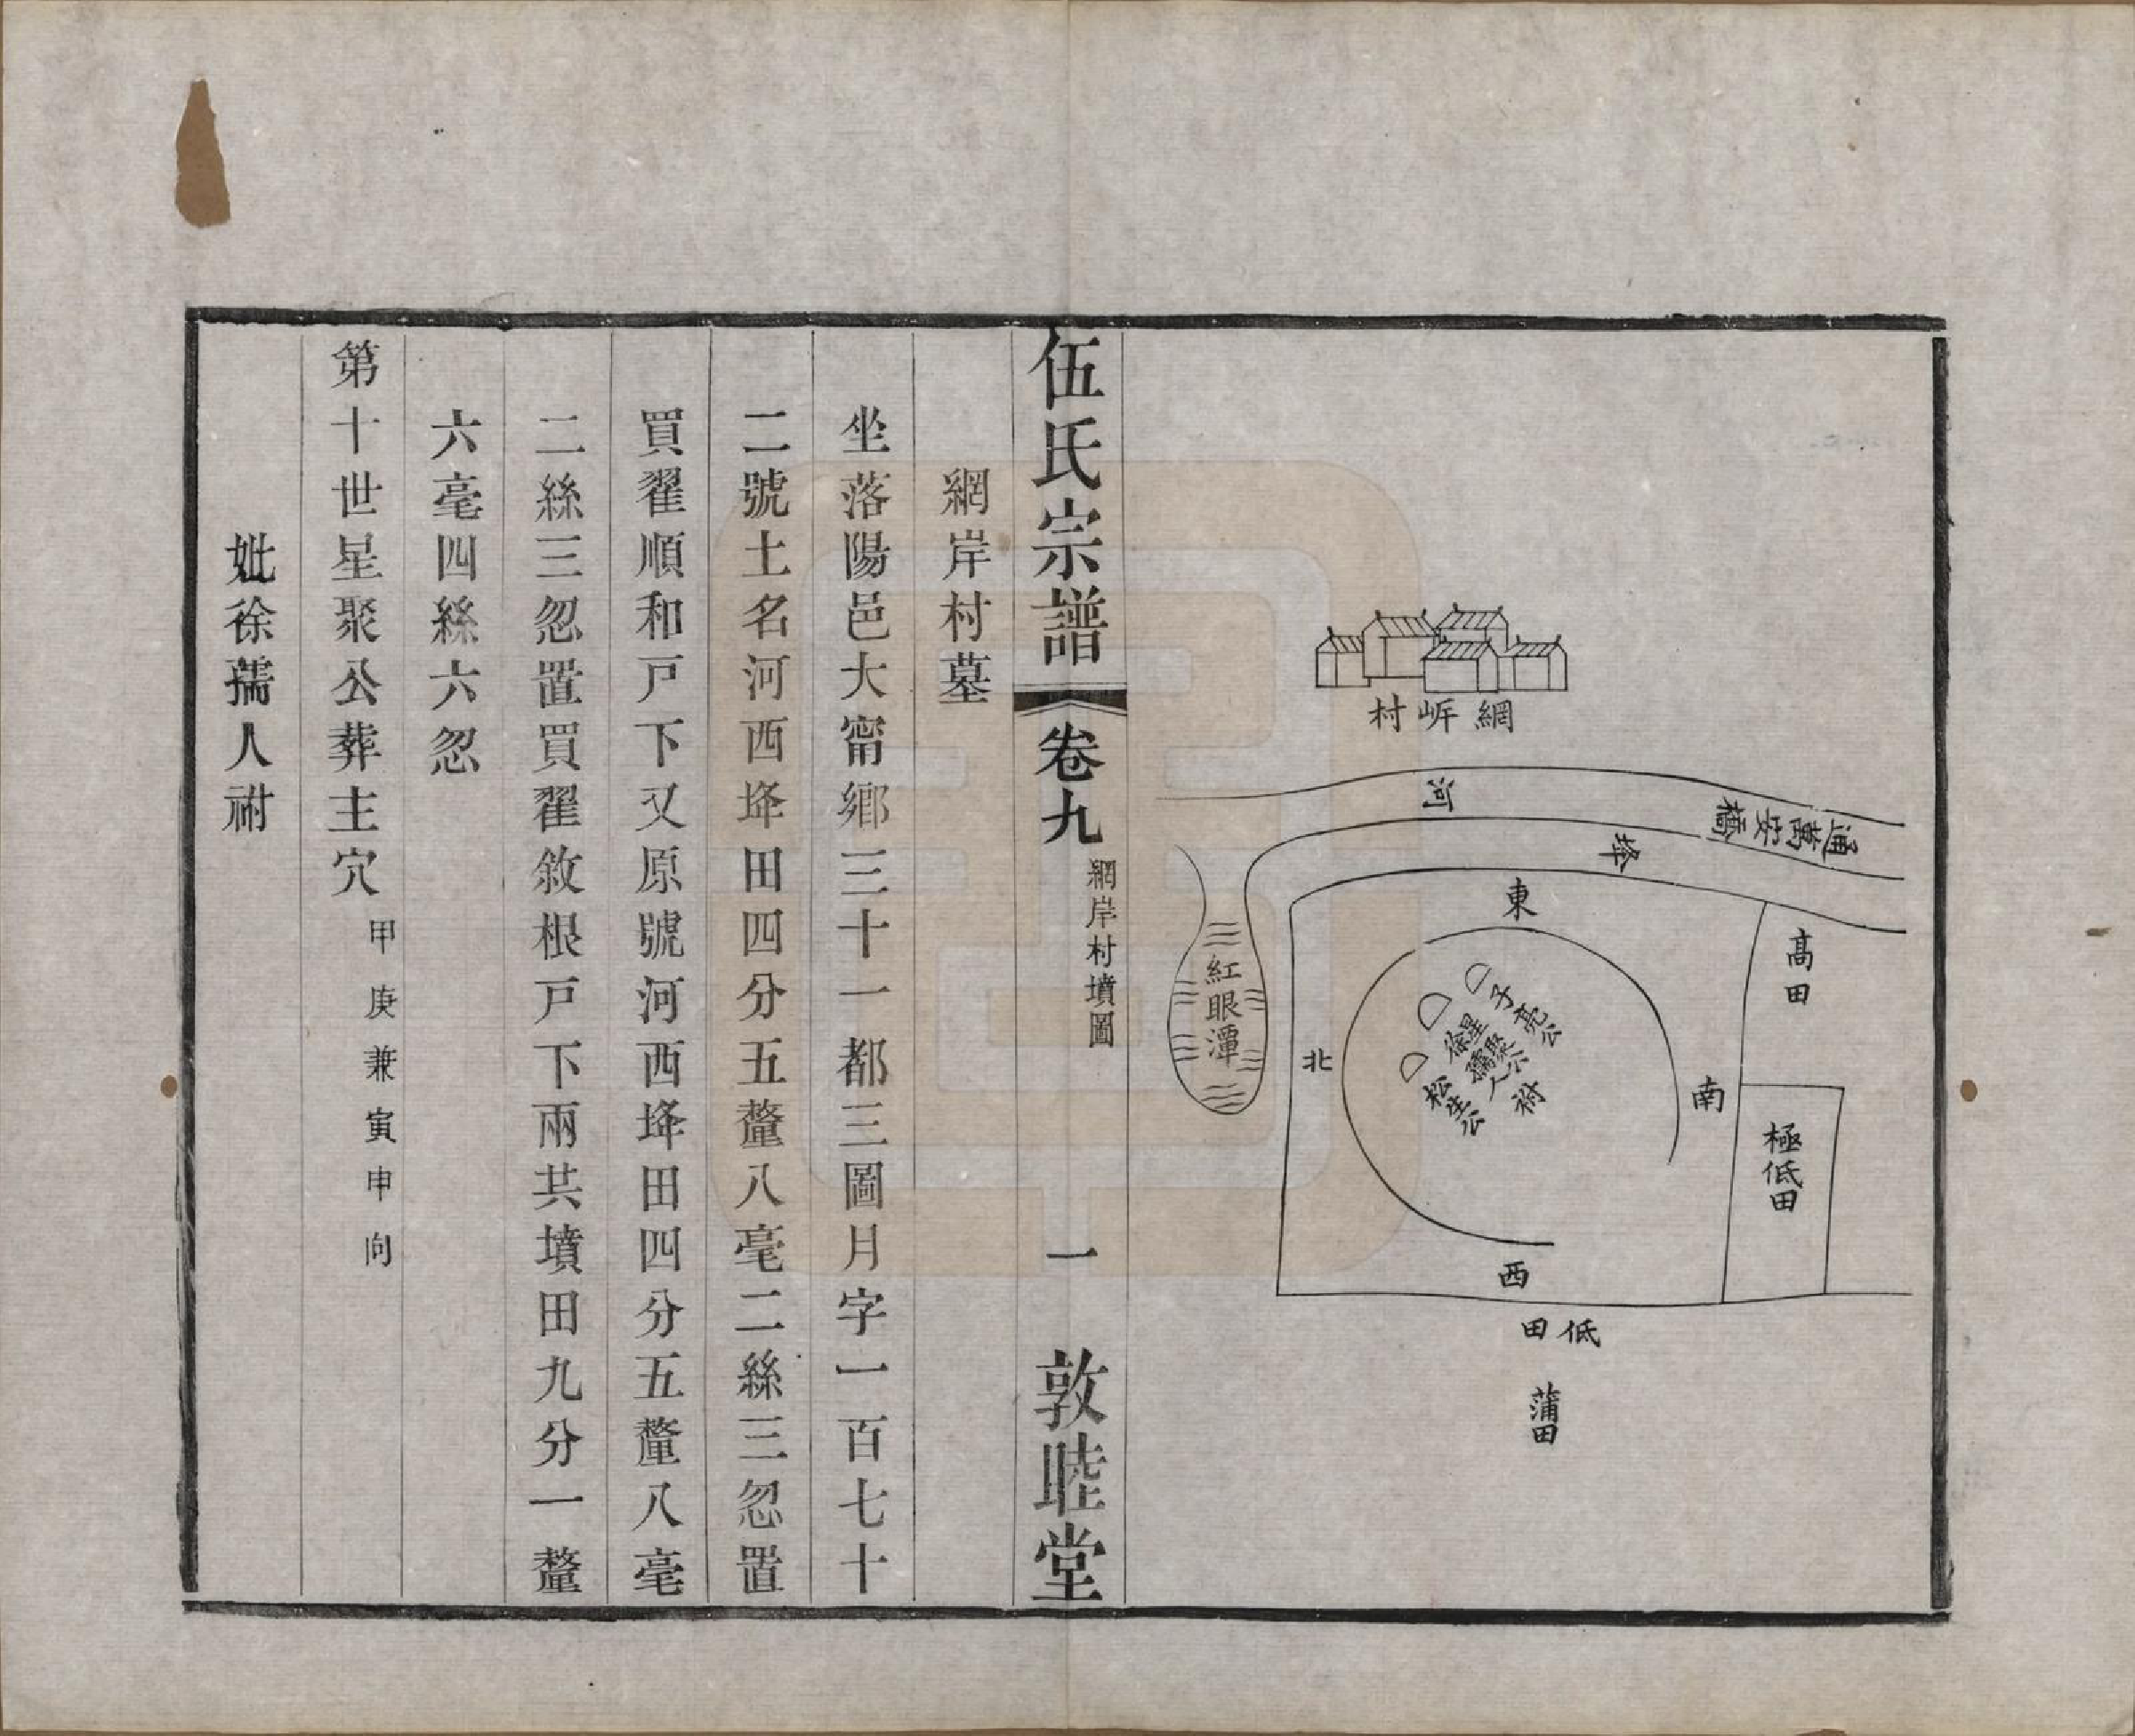 網㟁村
河
通萬安橋
埄
東
高田
紅眼潭
子亮公
星聚公
徐孺人祔
松生公
北
南
極低田
西
低田
蒲田
伍氏宗譜
卷九
網岸村墳圖
一
敦睦堂
網岸村墓
坐落陽邑大甯鄉三十一都三圖月字一百七十
二號土名河西埄田四分五釐八毫二絲三忽置
買翟順和戸下又原號河西埄田四分五釐八毫
二絲三忽置買翟敘根戸下兩共墳田九分一釐
六毫四絲六忽
第十世星聚公葬主穴甲庚兼寅申向
妣徐孺人祔